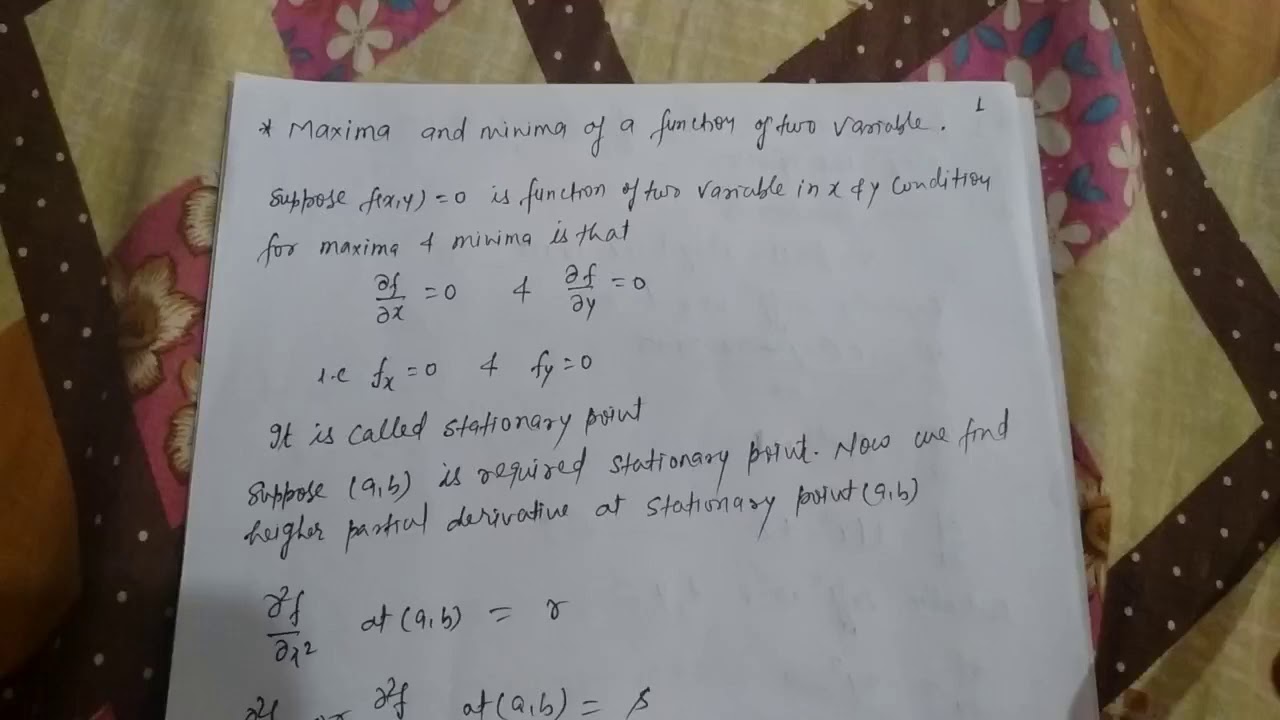 1
* Maxima and minima of a function of two variable.
Suppose f(x,y) = 0 is function of two variable in x & y condition
for maxima & minima is that
∂f/∂x = 0 & ∂f/∂y = 0
i.e fx = 0 & fy = 0
It is called stationary point
Suppose (a,b) is required stationary point. Now we find
heigher partial derivative at stationary point (a,b)
∂²f/∂x² at (a,b) = r
∂²f or ∂²f at (a,b) = s